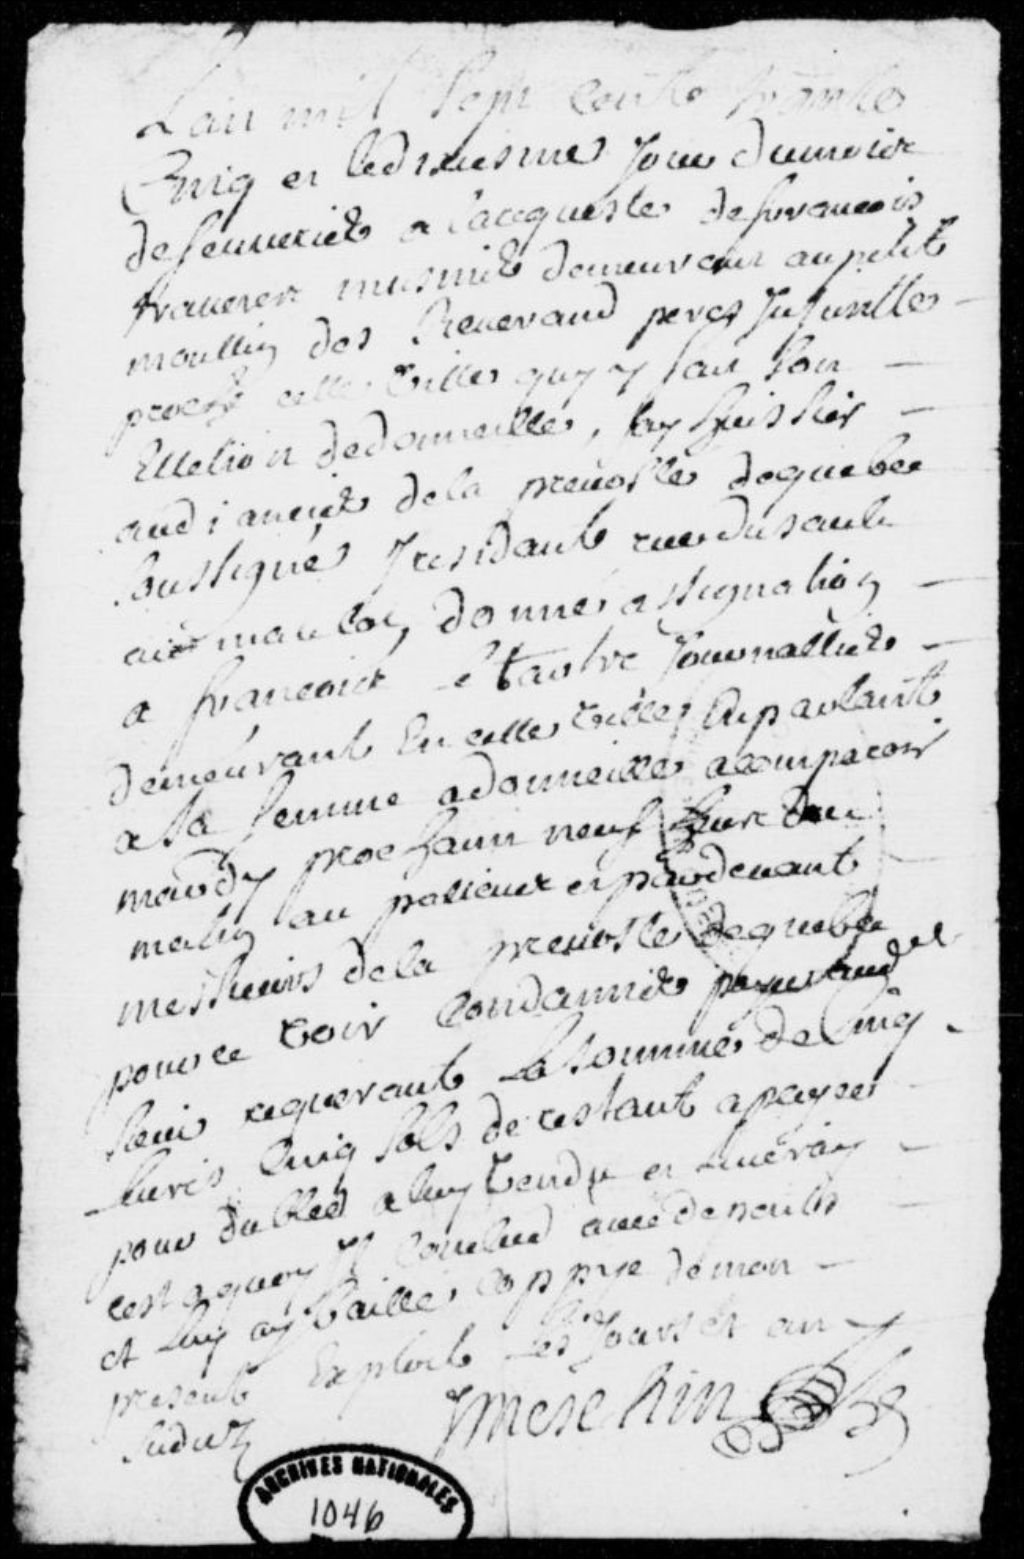 Lan mil Sept Cents trante
Cinq et le dixiesme Jour du mois
de feuvrier a la requeste de francois
musnier demeurant au petit
moullin des Reverand peres Jesuittes
proche cette ville quy y fait son
Ellection de domicille, Jay huissier
audiancier de la prevosté de quebec
soussigné Residant rue du sault
au matelot, donné assignation
a francois Journallier
demeurant En cette ville En parlant
a sa femme a domicille a comparoir
mardy prochain neuf heure du
matin au pallais et pardevant
messieurs de la prevosté de quebec
pour ce voir Condamner payer aud
Sieur requerant La somme de Cinq
Livres Cinq Sols de restant a payer
pour du bled a luy vendu et Livré
cest a quoy Il Conclud avec depens
et Luy ay baillé Coppye de mon
present Exploit Les Jours et an
Susdit
Meschin
ARCHIVES NATIONALES
1046